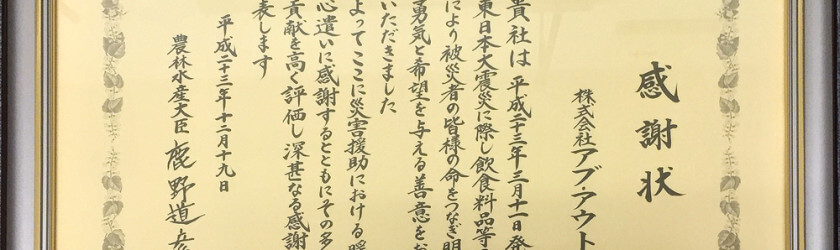 感謝状
株式会社アブ・アウト
貴社は平成二十三年三月十一日発
東日本大震災に際し飲食料品等
により被災者の皆様の命をつなぎ明
勇気と希望を与える善意をお
いただきました
よってここに災害援助における暖
心遣いに感謝するとともにその多
貢献を高く評価し深甚なる感謝
表します
平成二十三年十二月十九日
農林水産大臣 鹿野道彦